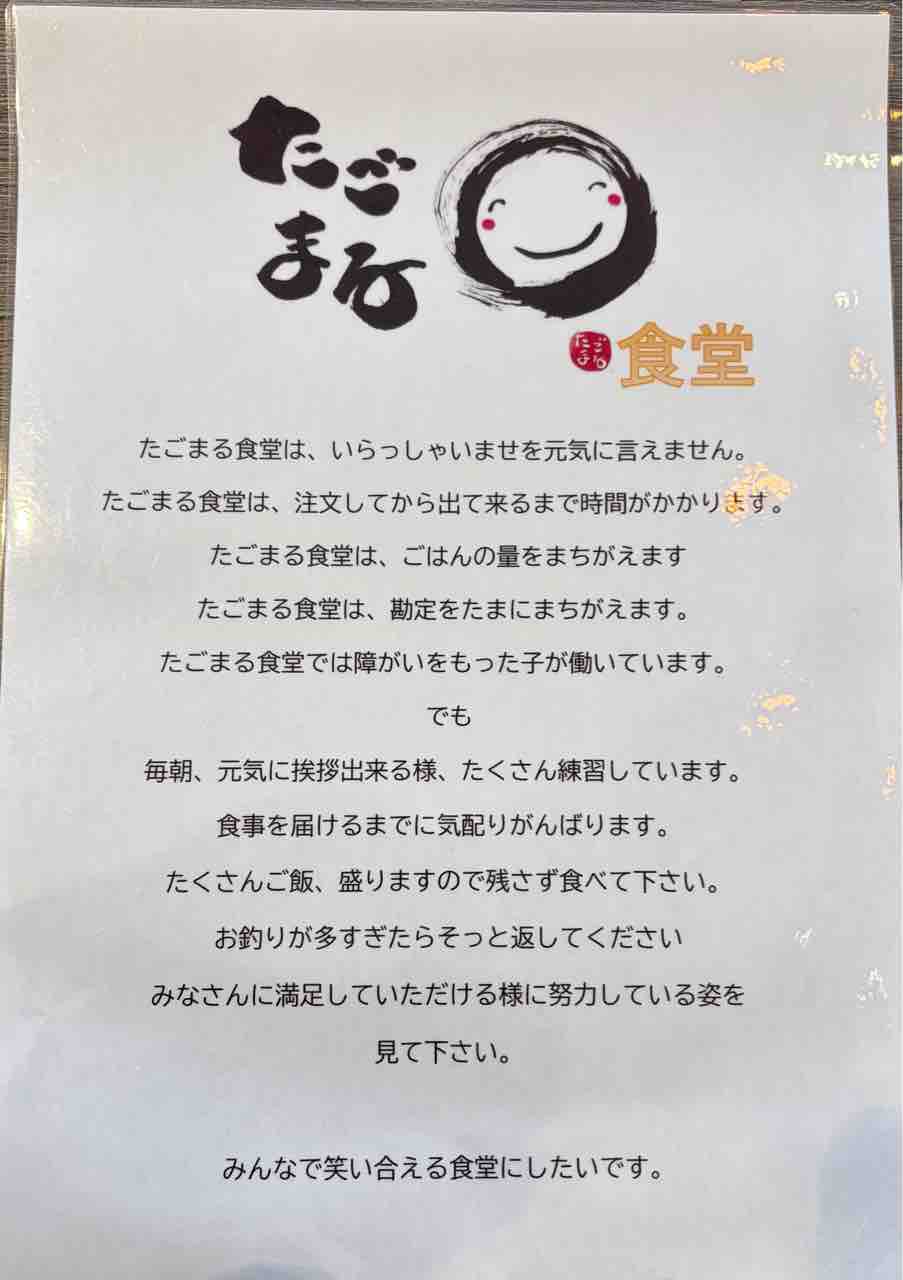 たご
まる
たごまる 食堂
たごまる食堂は、いらっしゃいませを元気に言えません。
たごまる食堂は、注文してから出て来るまで時間がかかります。
たごまる食堂は、ごはんの量をまちがえます
たごまる食堂は、勘定をたまにまちがえます。
たごまる食堂では障がいをもった子が働いています。
でも
毎朝、元気に挨拶出来る様、たくさん練習しています。
食事を届けるまでに気配りがんばります。
たくさんご飯、盛りますので残さず食べて下さい。
お釣りが多すぎたらそっと返してください
みなさんに満足していただける様に努力している姿を
見て下さい。
みんなで笑い合える食堂にしたいです。